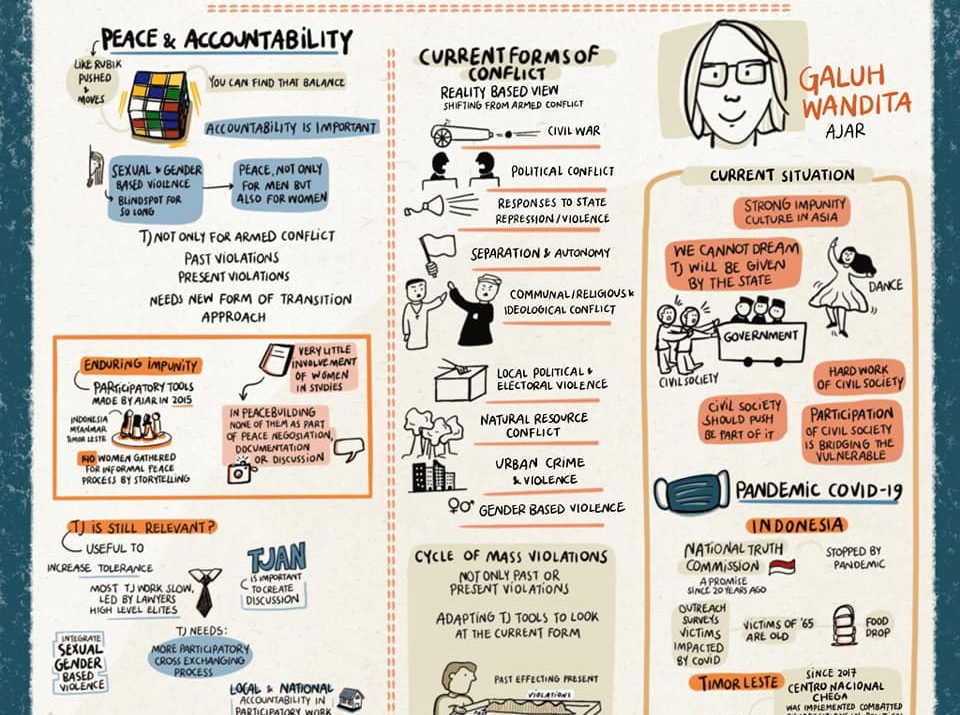 PEACE & ACCOUNTABILITY
LIKE RUBIK
PUSHED
&
MOVES
YOU CAN FIND THAT BALANCE
ACCOUNTABILITY IS IMPORTANT
SEXUAL & GENDER
BASED VIOLENCE
BLINDSPOT FOR
SO LONG
PEACE, NOT ONLY
FOR MEN BUT
ALSO FOR WOMEN
TJ NOT ONLY FOR ARMED CONFLICT
PAST VIOLATIONS
PRESENT VIOLATIONS
NEEDS NEW FORM OF TRANSITION
APPROACH
ENDURING IMPUNITY
PARTICIPATORY TOOLS
MADE BY AJAR IN 2015
INDONESIA
MYANMAR
TIMOR LESTE
140 WOMEN GATHERED
FOR INFORMAL PEACE
PROCESS BY STORYTELLING
VERY LITTLE
INVOLVEMENT
OF WOMEN
IN STUDIES
IN PEACEBUILDING
NONE OF THEM AS PART
OF PEACE NEGOSIATION,
DOCUMENTATION
OR DISCUSSION
TJ IS STILL RELEVANT?
USEFUL TO
INCREASE TOLERANCE
MOST TJ WORK SLOW,
LED BY LAWYERS
HIGH LEVEL ELITES
TJAN
IS IMPORTANT
TO CREATE
DISCUSSION
INTEGRATE
SEXUAL
GENDER
BASED
VIOLENCE
TJ NEEDS:
MORE PARTICIPATORY
CROSS EXCHANGING
PROCESS
LOCAL & NATIONAL
ACCOUNTABILITY IN
PARTICIPATORY WORK
CURRENT FORMS OF
CONFLICT
REALITY BASED VIEW
SHIFTING FROM ARMED CONFLICT
CIVIL WAR
POLITICAL CONFLICT
RESPONSES TO STATE
REPRESSION/VIOLENCE
SEPARATION & AUTONOMY
COMMUNAL/RELIGIOUS &
IDEOLOGICAL CONFLICT
LOCAL POLITICAL &
ELECTORAL VIOLENCE
NATURAL RESOURCE
CONFLICT
URBAN CRIME
& VIOLENCE
GENDER BASED VIOLENCE
CYCLE OF MASS VIOLATIONS
NOT ONLY PAST OR
PRESENT VIOLATIONS
ADAPTING TJ TOOLS TO LOOK
AT THE CURRENT FORM
PAST EFFECTING PRESENT
VIOLATIONS
GALUH
WANDITA
AJAR
CURRENT SITUATION
STRONG IMPUNITY
CULTURE IN ASIA
WE CANNOT DREAM
TJ WILL BE GIVEN
BY THE STATE
DANCE
GOVERNMENT
CIVIL SOCIETY
HARD WORK
OF CIVIL SOCIETY
CIVIL SOCIETY
SHOULD PUSH
BE PART OF IT
PARTICIPATION
OF CIVIL SOCIETY
IS BRIDGING THE
VULNERABLE
PANDEMIC COVID-19
INDONESIA
NATIONAL TRUTH
COMMISSION
A PROMISE
SINCE 20 YEARS AGO
STOPPED BY
PANDEMIC
OUTREACH
SURVEYS
VICTIMS
IMPACTED
BY COVID
VICTIMS OF '65
ARE OLD
FOOD
DROP
TIMOR LESTE
SINCE 2017
CENTRO NACIONAL
CHEGA
WAS IMPLEMENTED COMBATTED